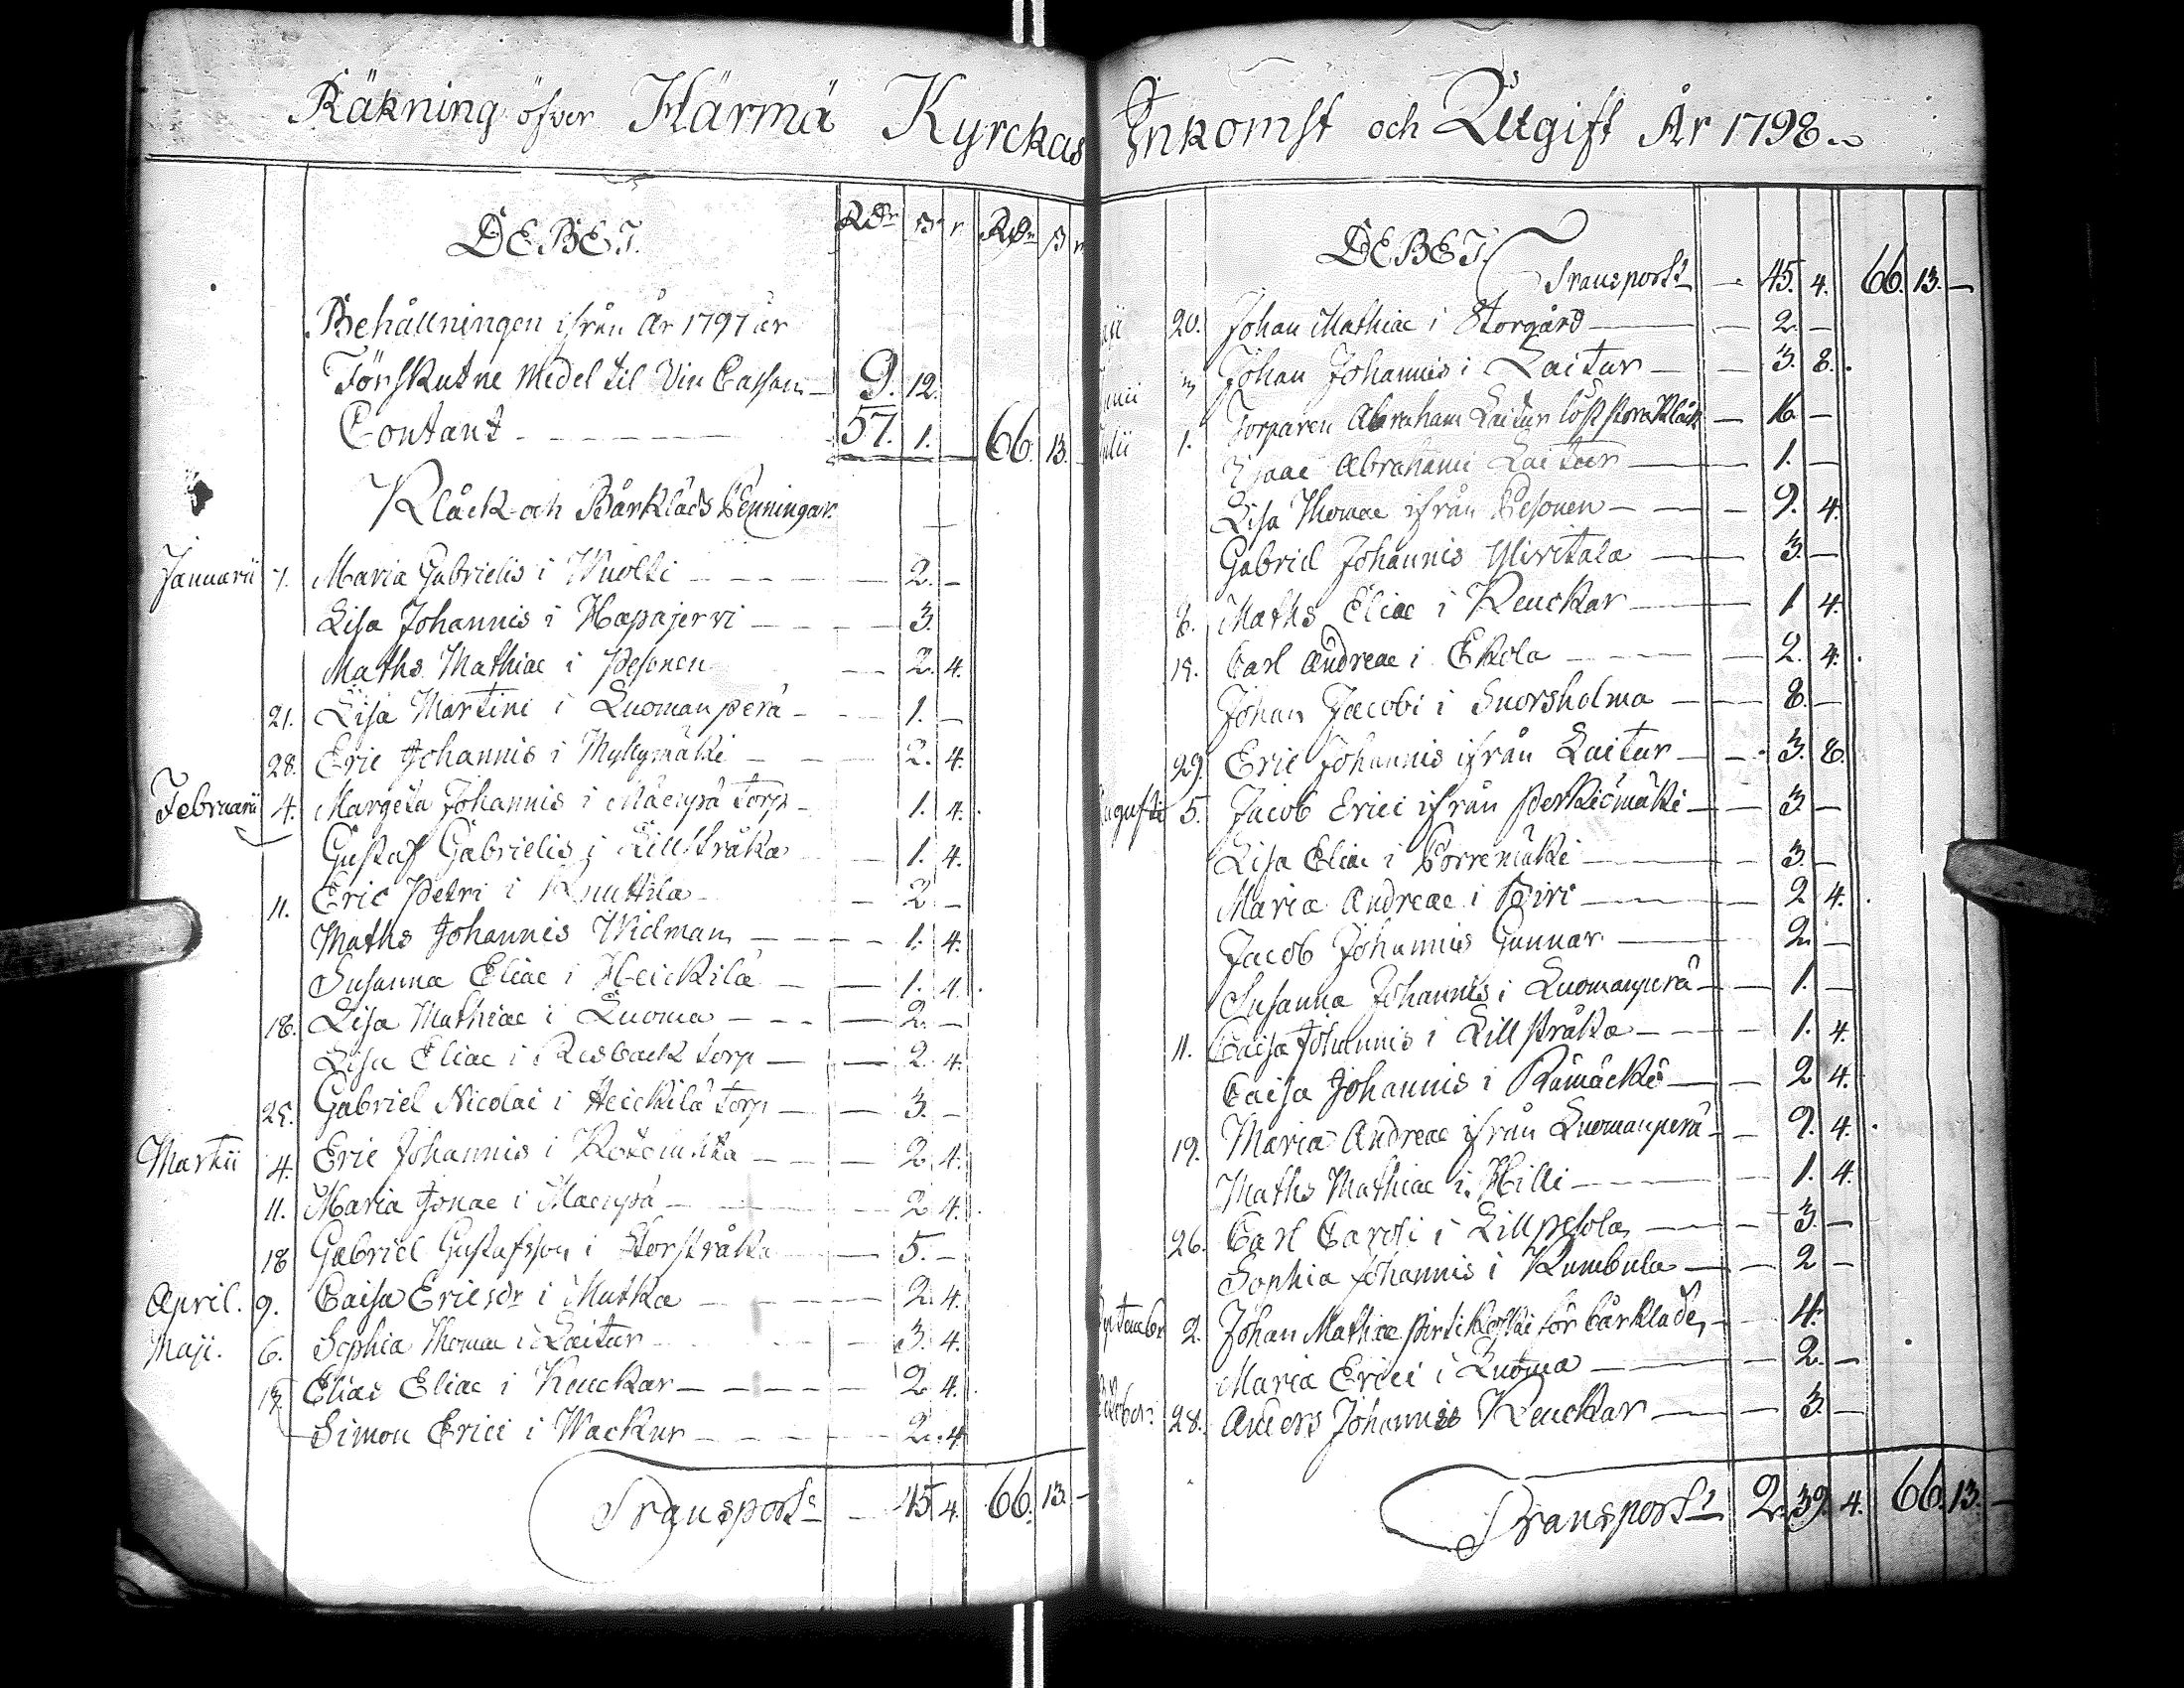 Räkning öfver Härmä Kyrckas Inkomst och Utgift År 1798.
DEBET. Rdr ß r Rdr ß r
Behållningen ifrån År 1797 är
Förskutne Medel til Vin Cassan 9. 12.
Contant 57. 1. – 66. 13. –
Klåck och Bårkläds Penningar
Januarii 7. Maria Gabrielis i Wuolti – 2. –
Lisa Johannis i Hapajervi – 3.
Maths Mathiae i Pesonen – 2. 4.
21. Lisa Martini i Luomanperä – 1. –
28. Eric Johannis i Myllymäki – 2. 4.
Februarii 4. Margeta Johannis i Mäenpä torp – 1. 4.
Gustaf Gabrielis i Lillstråka – 1. 4.
11. Eric Petri i Knuttila – 2 –
Maths Johannis Widman – 1. 4.
Susanna Eliae i Heickilä – 1. 4.
18. Lisa Mathiae i Luoma – 2. –
Lisa Eliae i Risback torp – 2. 4.
25. Gabriel Nicolai i Heickilä torp – 3. –
Martii 4. Eric Johannis i – 2 4.
11. Maria Jonae i Mäenpä – 2 4.
18 Gabriel Gustafsson i Storstråka – 5. –
April. 9. Caisa Ericsdr i Mutka – 2. 4.
Maji. 6. Sophia Thomae i Laitur – 3. 4.
13. Elias Eliae i Keuckar – 2 4.
Simon Erici i Wackur – 2. 4
Transport – 45 4. 66. 13. –
DEBET.
Transport – 45. 4. 66. 13. –
20. Johan Mathiae i Storgård – 2. –
3 Johan Johannis i Laitur – 3. 8.
1. Torparen Abraham Laitur löst stora Klåck – 16 –
Isaac Abrahami Laitur – 1. –
Lisa Thomae ifrån Pesonen – 9. 4.
Gabriel Johannis Ylivitala – 3. –
8. Maths Eliae i Keuckar – 1 4.
15. Carl Andreae i Ekola – 2. 4.
Johan Jacobi i Snorsholma – 8. –
29. Eric Johannis ifrån Laitur – 3. 8.
Augusti 5. Jacob Erici ifrån Perkiömäki – 3 –
Lisa Eliae i Porremäki – 3. –
Maria Andreae i Piri – 2 4.
Jacob Johannis Gunnar – 2. –
Susanna Johannis i Luomanperä – 1. –
11. Caisa Johannis i Lillstråka – 1. 4.
Caisa Johannis i Rämäcke – 2 4.
19. Maria Andreae ifrån Luomanperä – 9. 4.
Maths Mathiae i Hilli – 1. 4.
26. Carl Caroli i Lillpesola – 3. –
Sophia Johannis i Kumbula – 2 –
2. Johan Mathiae Pirtikoski för bårkläde – 4.
Maria Erici i Luoma – 2. –
28. Anders Johannis Keuckar – 3. –
Transport 2. 39. 4. 66. 13. –